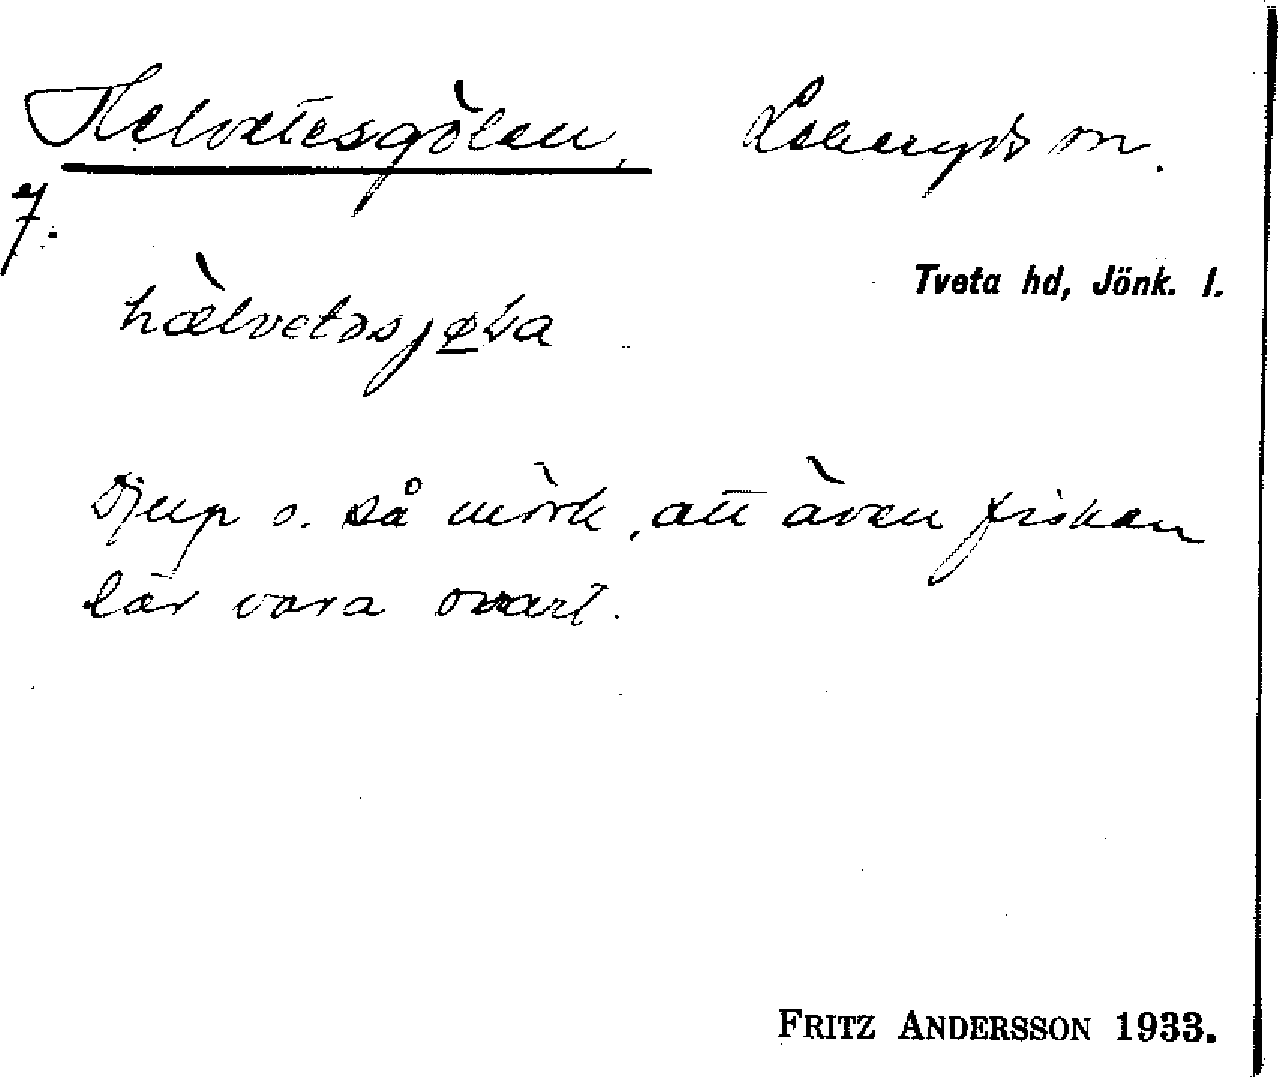 Helvetesgölen, Lekeryds sn.
7.
Tveta hd, Jönk. l.
hælvetəsjøɫa
Djup o. så mörk, att även fisken
lär vara svart.
FRITZ ANDERSSON 1933.